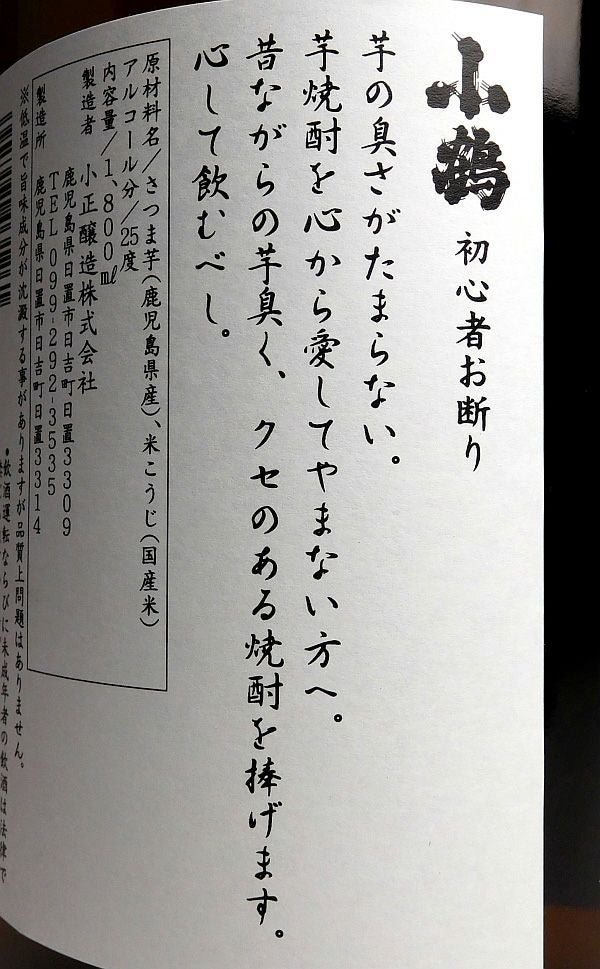 小鶴 初心者お断り
芋の臭さがたまらない。
芋焼酎を心から愛してやまない方へ。
昔ながらの芋臭く、クセのある焼酎を捧げます。
心して飲むべし。
原材料名/さつま芋(鹿児島県産)、米こうじ(国産米)
アルコール分/25度
内容量/1,800㎖
製造者 小正醸造株式会社
鹿児島県日置市日吉町日置3309
TEL 099-292-3535
製造所 鹿児島県日置市日吉町日置3314
※低温で旨味成分が沈澱する事がありますが品質上問題はありません。
●飲酒運転ならびに未成年者の飲酒は法律で